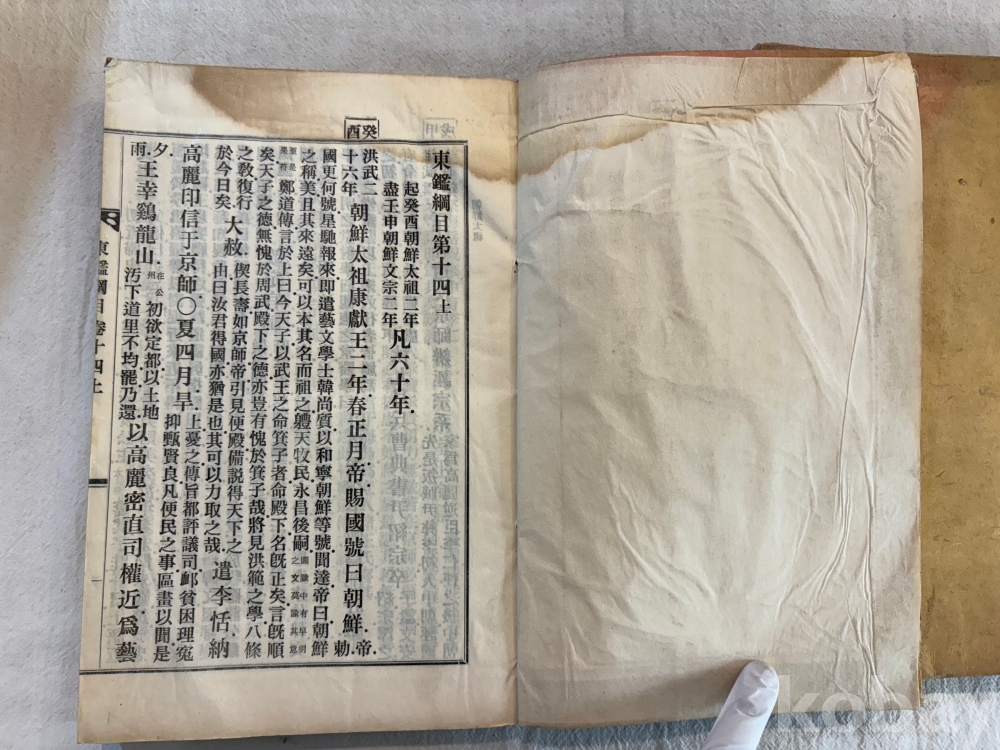 東鑑綱目第十四上
起癸酉朝鮮太祖二年
盡壬申朝鮮文宗二年
凡六十年
癸酉
洪武二
十六年
朝鮮太祖康獻王二年春正月帝賜國號曰朝鮮
帝
勅
國更何號星馳報來即遣藝文學士韓尚質以和寧朝鮮等號聞達帝曰朝鮮
之稱美且其來遠矣可以本其名而祖之軆天牧民永昌後嗣
鄭道傳言於上曰今天子以武王之命箕子者命殿下名旣正矣言旣順
矣天子之德無愧於周武殿下之德亦豈有愧於箕子哉將見洪範之學八條
之敎復行
於今日矣
大赦
偰長壽如京師帝引見便殿備説得天下之
由曰汝君得國亦猶是也其可以力取之哉
遣李恬納
高麗印信于京師○夏四月旱
上憂之傳旨都評議司邺貧困理寃
抑甄賢良凡便民之事區畫以聞是
夕
雨
王幸鷄龍山
在公
州
初欲定都以土地
汚下道里不均罷乃還
以高麗密直司權近爲藝
東鑑綱目卷十四上
kobay